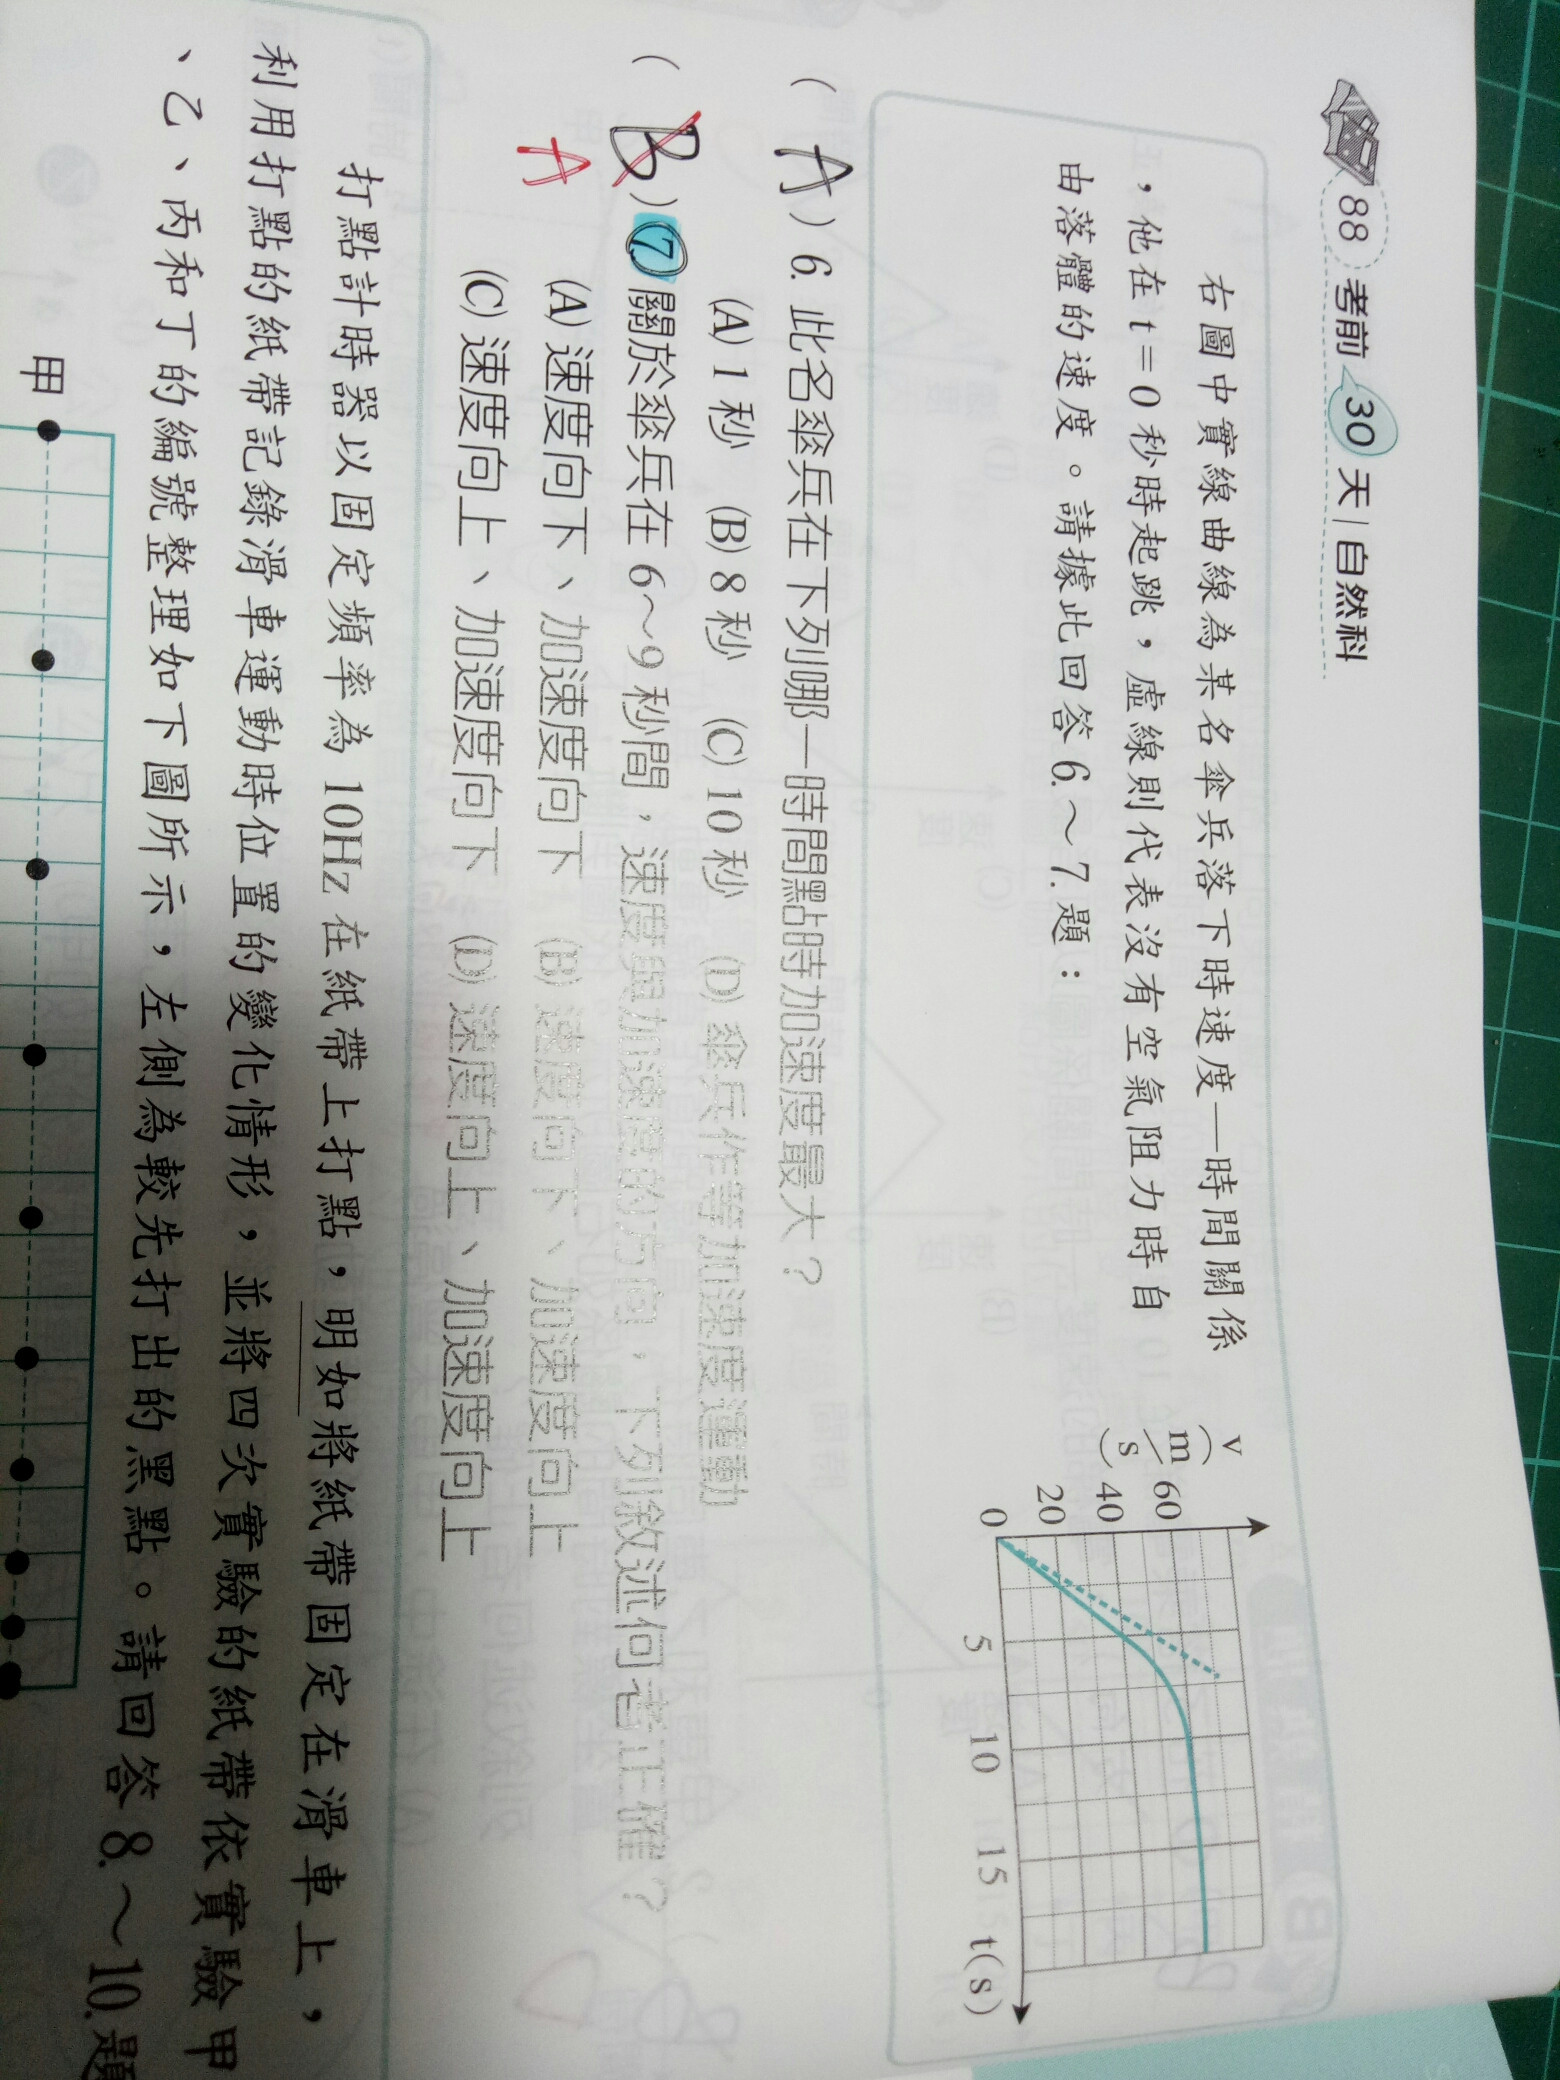 88 考前 30 天 | 自然科
右圖中實線曲線為某名傘兵落下時速度—時間關係
,他在 t = 0 秒時起跳,虛線則代表沒有空氣阻力時自
由落體的速度。請據此回答 6.～7.題：
v
(m/s)
60
40
20
0
5
10
15
t(s)
( A ) 6. 此名傘兵在下列哪一時間點時加速度最大？
(A) 1 秒 (B) 8 秒 (C) 10 秒 (D) 傘兵作等加速度運動
( B ) 7. 關於傘兵在 6～9 秒間，速度與加速度的方向，下列敘述何者正確？
A
(A) 速度向下、加速度向下 (B) 速度向下、加速度向上
(C) 速度向上、加速度向下 (D) 速度向上、加速度向上
打點計時器以固定頻率為 10Hz 在紙帶上打點，明如將紙帶固定在滑車上，
利用打點的紙帶記錄滑車運動時位置的變化情形，並將四次實驗的紙帶依實驗甲
、乙、丙和丁的編號整理如下圖所示，左側為較先打出的黑點。請回答 8.～10.題
甲